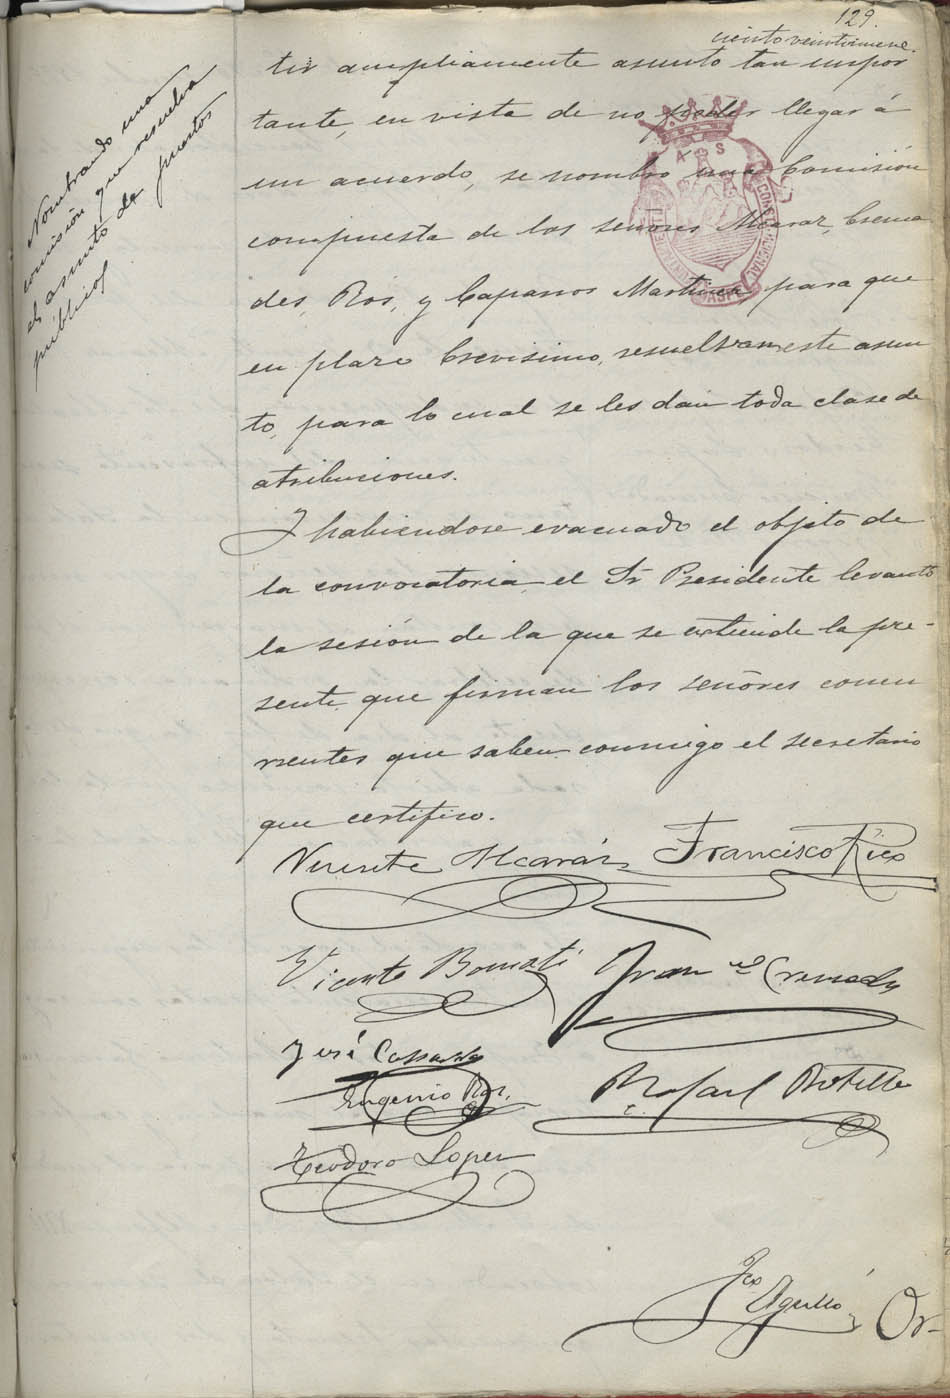 129.
ciento veintinueve.
Nombrando una
comisión que resuelva
el asunto de puestos
públicos
tir ampliamente asunto tan impor
tante, en vista de no poder llegar á
un acuerdo, se nombró una Comisión
compuesta de los señores Alcaraz, Crema
des, Ros, y Caparros Martinez para que
en plazo brevisimo, resuelvan este asun
to, para lo cual se les dan toda clase de
atribuciones.
Y habiendose evacuado el objeto de
la convocatoria, el Sr Presidente levantó
la sesión de la que se extiende la pre-
sente que firman los señores concu
rrentes que saben conmigo el secretario
que certifico.
Vicente Alcaráz Francisco Rico
Vicente Bonmatí Fran co Cremades
José
Eugenio Ros. Rafael Botella
Teodoro Lopez
Fco Agulló
Or-